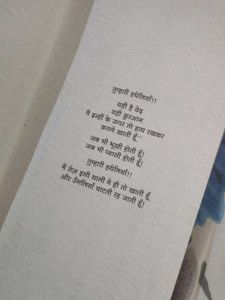 तुम्हारी हथेलियाँ!!
यही है वेद
यही क़ुरआन
मैं इन्हीं के ऊपर तो हाथ रखकर
क़समें खाती हूँ...
जब भी भूखी होती हूँ!
जब भी प्यासी होती हूँ!
तुम्हारी हथेलियाँ!!
मैं रोज़ इसी थाली में ही तो खाती हूँ,
और उँगलियाँ चाटती रह जाती हूँ!